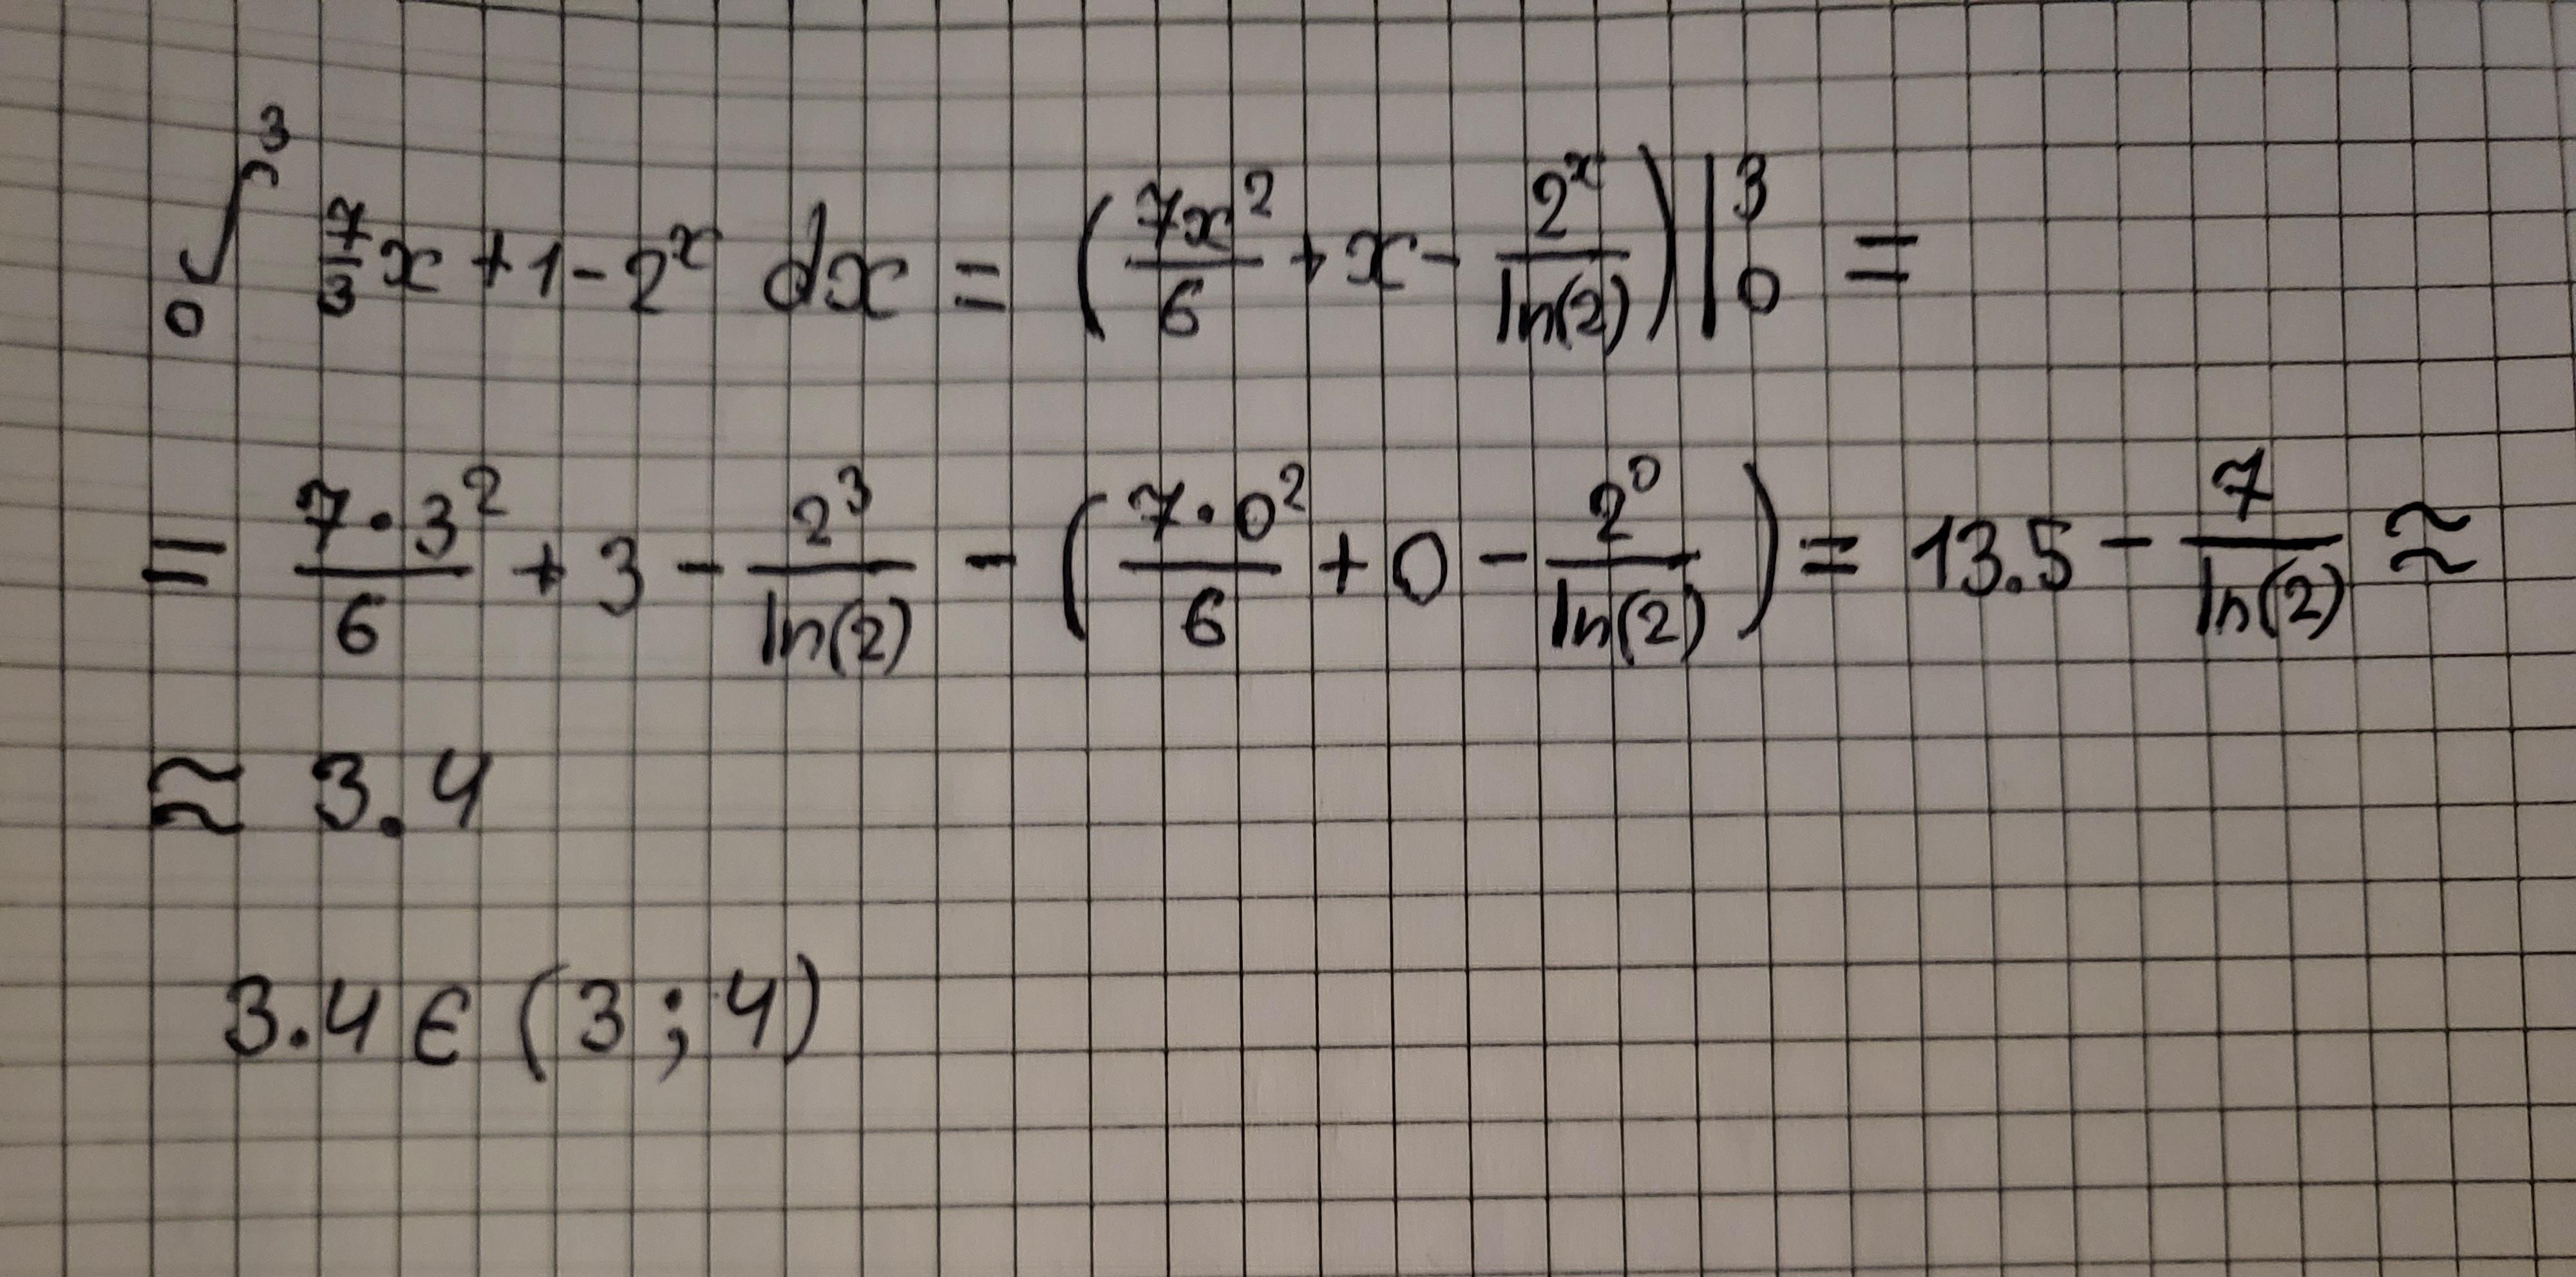 ∫₀³ 7/3 x + 1 - 2ˣ dx = (7x²/6 + x - 2ˣ/ln(2))|₀³ =
= 7·3²/6 + 3 - 2³/ln(2) - (7·0²/6 + 0 - 2⁰/ln(2)) = 13.5 - 7/ln(2) ≈
≈ 3.4
3.4 ∈ (3; 4)